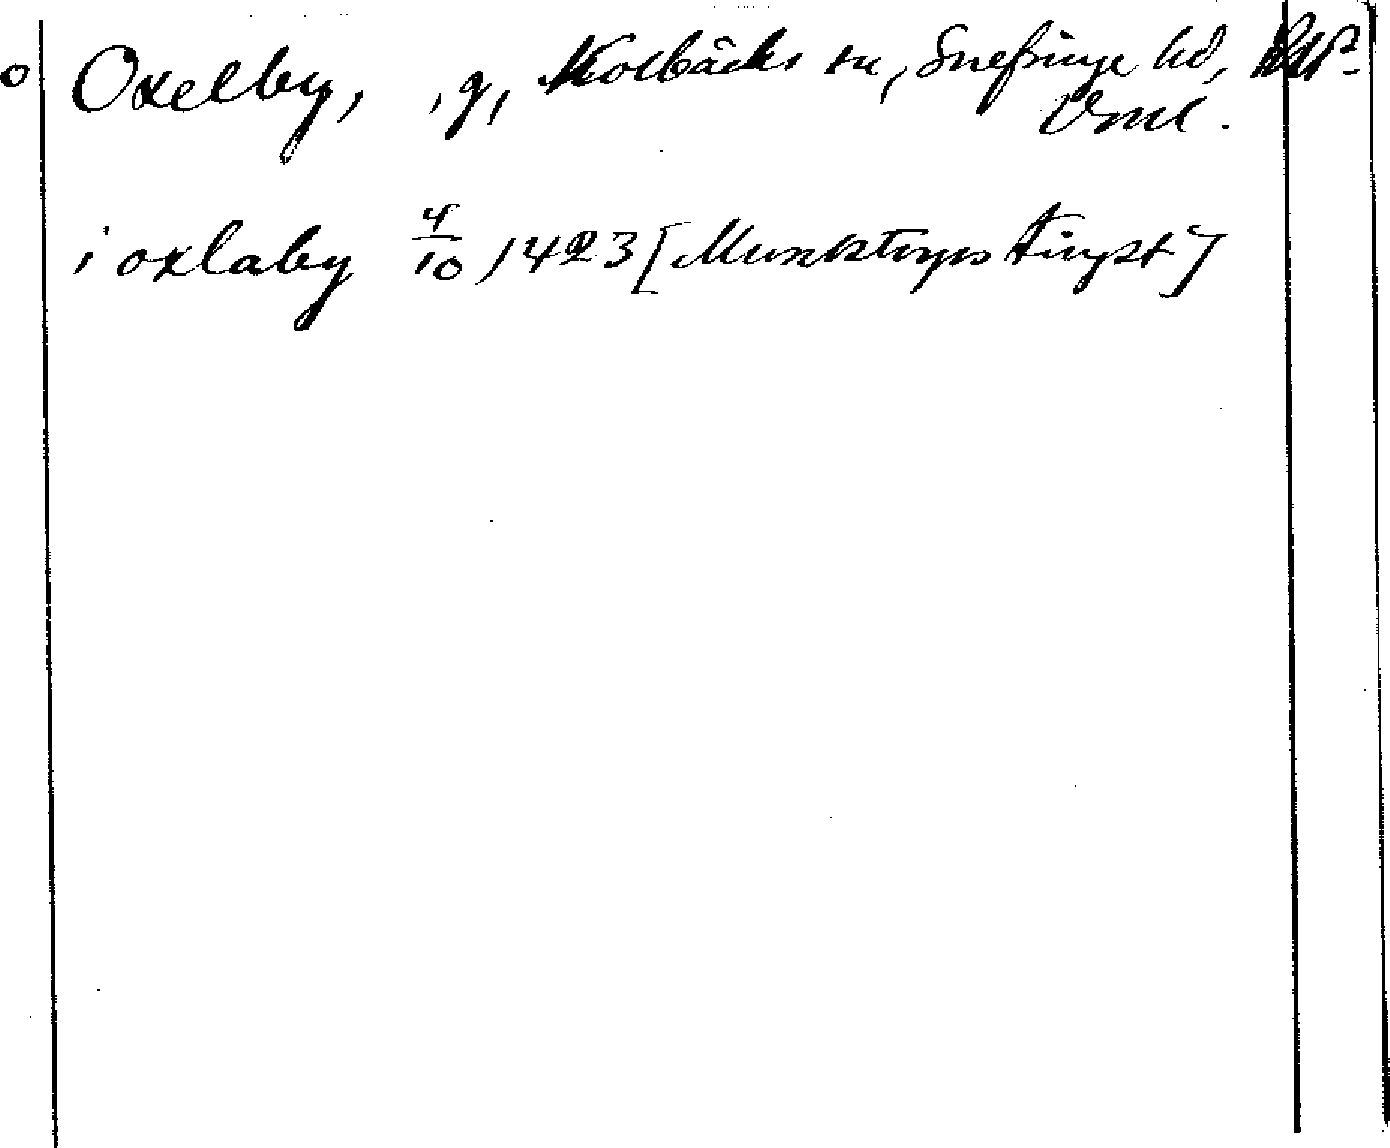 o Oxelby, , g, Kolbäcks sn, Snefringe hd,
Vml.
i oxlaby 4/10 1423 [Munktorps tingst]